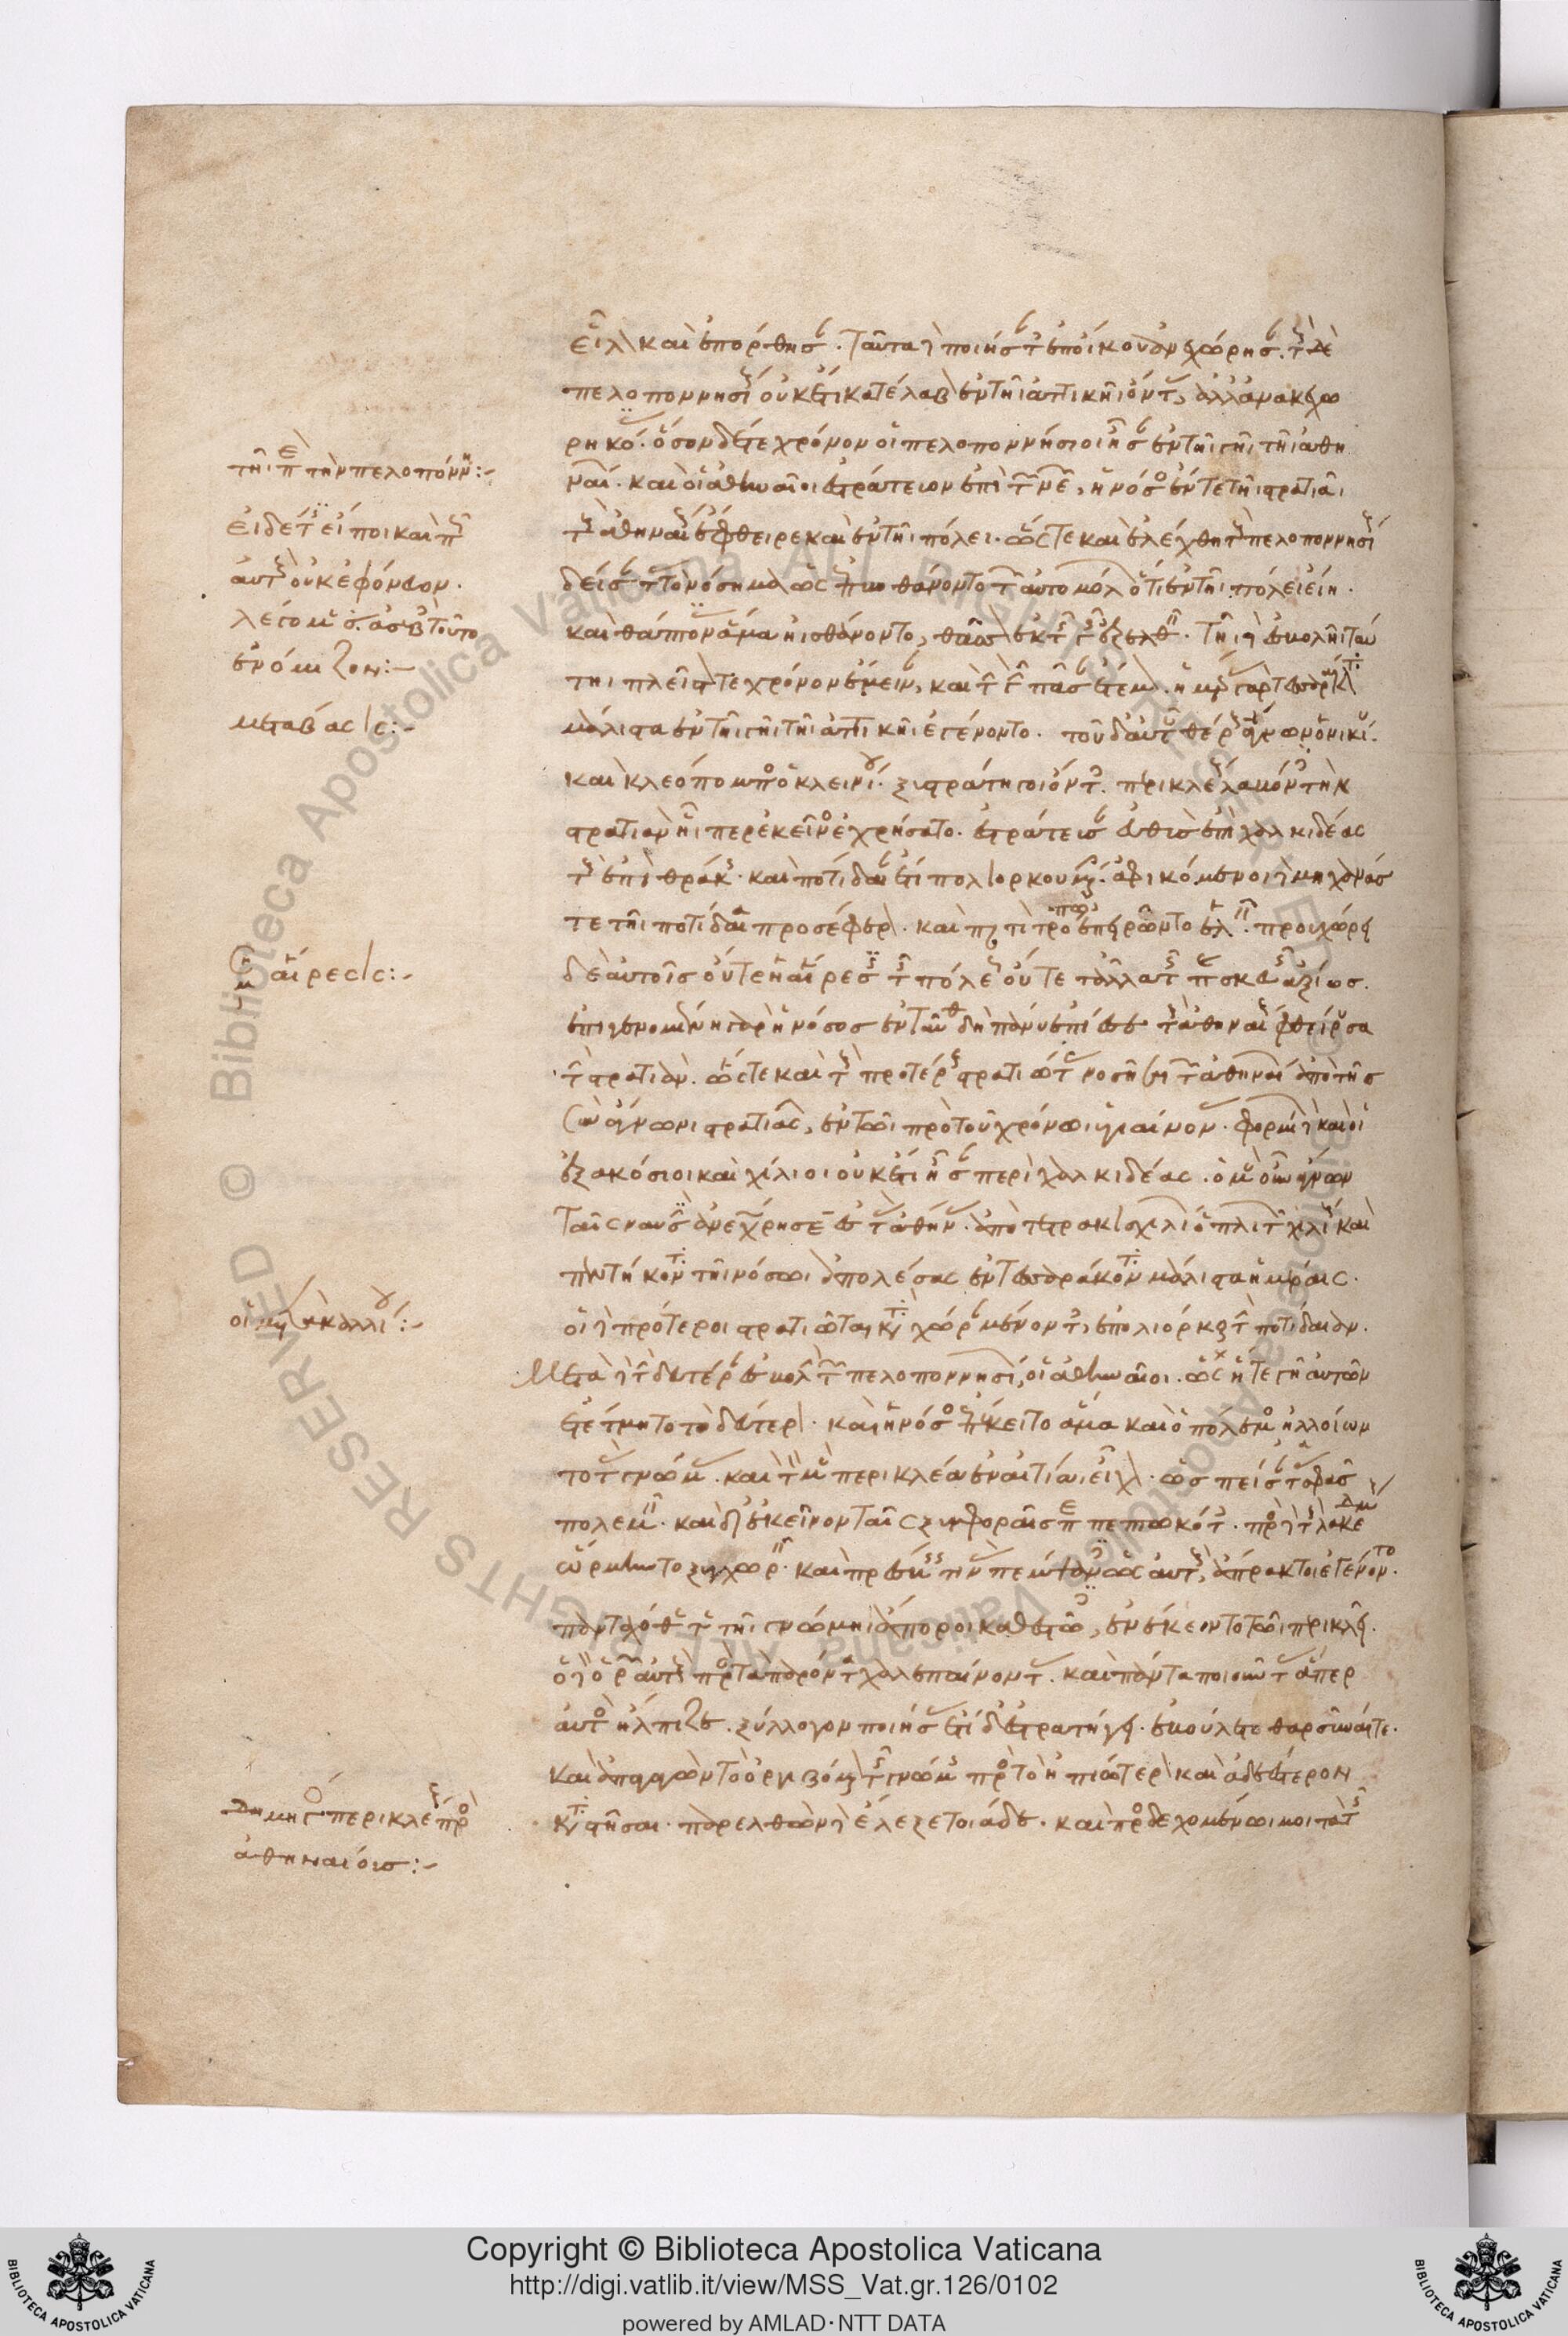 εἷλον καὶ ἐπόρθησαν. ταῦτα δὲ ποιήσαντες ἐπ' οἴκου ἀνεχώρησαν. τοὺς δὲ
πελοποννησίους οὐκέτι κατέλαβον ἐν τῆι ἀττικῆι ὄντας, ἀλλ' ἀνακεχω
ρηκότας. ὅσον δέ τε χρόνον οἱ πελοποννήσιοι ἦσαν ἐν τῆι γῆι τῆι ἀθη
ναίων. καὶ οἱ ἀθηναῖοι ἐστράτευον ἐπὶ τῶν νεῶν, ἡ νόσος ἔν τε τῆι στρατιᾶι
τοὺς ἀθηναίους ἔφθειρε καὶ ἐν τῆι πόλει. ὥστε καὶ ἐλέχθη τοὺς πελοποννησίους
δείσαντας τὸ νόσημα ὡς ἐπυνθάνοντο τῶν αὐτομόλων ὅτι ἐν τῆι πόλει εἴη.
καὶ θάπτοντας ἅμα ἠισθάνοντο, θᾶσσον ἐκ τῆς γῆς ἐξελθεῖν. τῆι δὲ ἐσβολῆι ταύ
τηι πλεῖστόν τε χρόνον ἐνέμειναν, καὶ τὴν γῆν πᾶσαν ἔτεμον. ἡμέρας γὰρ τεσσαράκοντα
μάλιστα ἐν τῆι γῆι τῆι ἀττικῆι ἐγένοντο. τοῦ δ' αὐτοῦ θέρους ἅγνων ὁ νικίου.
καὶ κλεόπομπος ὁ κλεινίου. ξυστράτηγοι ὄντες περικλέους λαβόντες τὴν
στρατιὰν ἧιπερ ἐκεῖνος ἐχρήσατο. ἐστράτευσαν εὐθὺς ἐπὶ χαλκιδέας
τοὺς ἐπὶ θράκης. καὶ ποτίδαιαν ἔτι πολιορκουμένην. ἀφικόμενοι δὲ μηχανάς
τε τῆι ποτιδαίαι προσέφερον. καὶ παντὶ τρόπωι ἐπειρῶντο ἑλεῖν. προυχώρει
δὲ αὐτοῖς οὔτε ἡ αἵρεσις τῆς πόλεως οὔτε τἄλλα τῆς παρασκευῆς ἀξίως.
ἐπιγενομένη γὰρ ἡ νόσος ἐνταῦθα δὴ πάνυ ἐπίεσε τοὺς ἀθηναίους φθείρουσα
τὴν στρατιάν. ὥστε καὶ τοὺς προτέρους στρατιώτας νοσῆσαι τῶν ἀθηναίων ἀπὸ τῆς
ξὺν ἅγνωνι στρατιᾶς, ἐν τῶι πρὸ τοῦ χρόνωι ὑγιαίνοντας. φορμίων δὲ καὶ οἱ
ἑξακόσιοι καὶ χίλιοι οὐκέτι ἦσαν περὶ χαλκιδέας. ὁ μὲν οὖν ἅγνων
ταῖς ναυσὶν ἀνεχώρησεν ἐς τὰς ἀθήνας. ἀπὸ τετρακισχιλίων ὁπλιτῶν χιλίους καὶ
πεντήκοντα τῆι νόσωι ἀπολέσας ἐν τεσσαράκοντα μάλιστα ἡμέραις.
οἱ δὲ πρότεροι στρατιῶται κατὰ χώραν μένοντες ἐπολιόρκουν τὴν ποτίδαιαν.
Μετὰ δὲ τὴν δευτέραν ἐσβολὴν τῶν πελοποννησίων, οἱ ἀθηναῖοι. ὡς ἥ τε γῆ αὐτῶν
ἐτέτμητο τὸ δεύτερον. καὶ ἡ νόσος ἐπέκειτο ἅμα καὶ ὁ πόλεμος ἠλλοίων
το τὰς γνώμας. καὶ τὸν μὲν περικλέα ἐν αἰτίαι εἶχον. ὡς πείσαντα σφᾶς
πολεμεῖν. καὶ δι' ἐκεῖνον ταῖς ξυμφοραῖς περιπεπτωκότες. πρὸς δὲ τοὺς λακεδαιμονίους
ὥρμηντο ξυγχωρεῖν. καὶ πρέσβεις τινὰς πέμψαντες ὡς αὐτοὺς, ἄπρακτοι ἐγένοντο.
πανταχόθεν τε τῆι γνώμηι ἄποροι καθεστῶτες, ἐνέκειντο τῶι περικλεῖ.
ὁ δὲ ὁρῶν αὐτοὺς πρὸς τὰ παρόντα χαλεπαίνοντας. καὶ πάντα ποιοῦντας ἅπερ
αὐτὸς ἤλπιζε. ξύλλογον ποιήσας ἔτι δ' ἐστρατήγει. ἐβούλετο θαρσῦναί τε.
καὶ ἀπαγαγὼν τὸ ὀργιζόμενον τῆς γνώμης πρὸς τὸ ἠπιώτερον καὶ ἀδεέστερον
καταστῆσαι. παρελθὼν δὲ ἔλεξε τοιάδε. καὶ προσδεχομένωι μοι τὰ τῆς
τῆι περὶ τὴν πελοπόννησον:-
μετάβασις:-
ἡ αἵρεσις:-
δημηγορία περικλέους πρὸς
ἀθηναίους:-
Copyright © Biblioteca Apostolica Vaticana
http://digi.vatlib.it/view/MSS_Vat.gr.126/0102
powered by AMLAD·NTT DATA
BIBLIOTECA APOSTOLICA VATICANA
BIBLIOTECA APOSTOLICA VATICANA